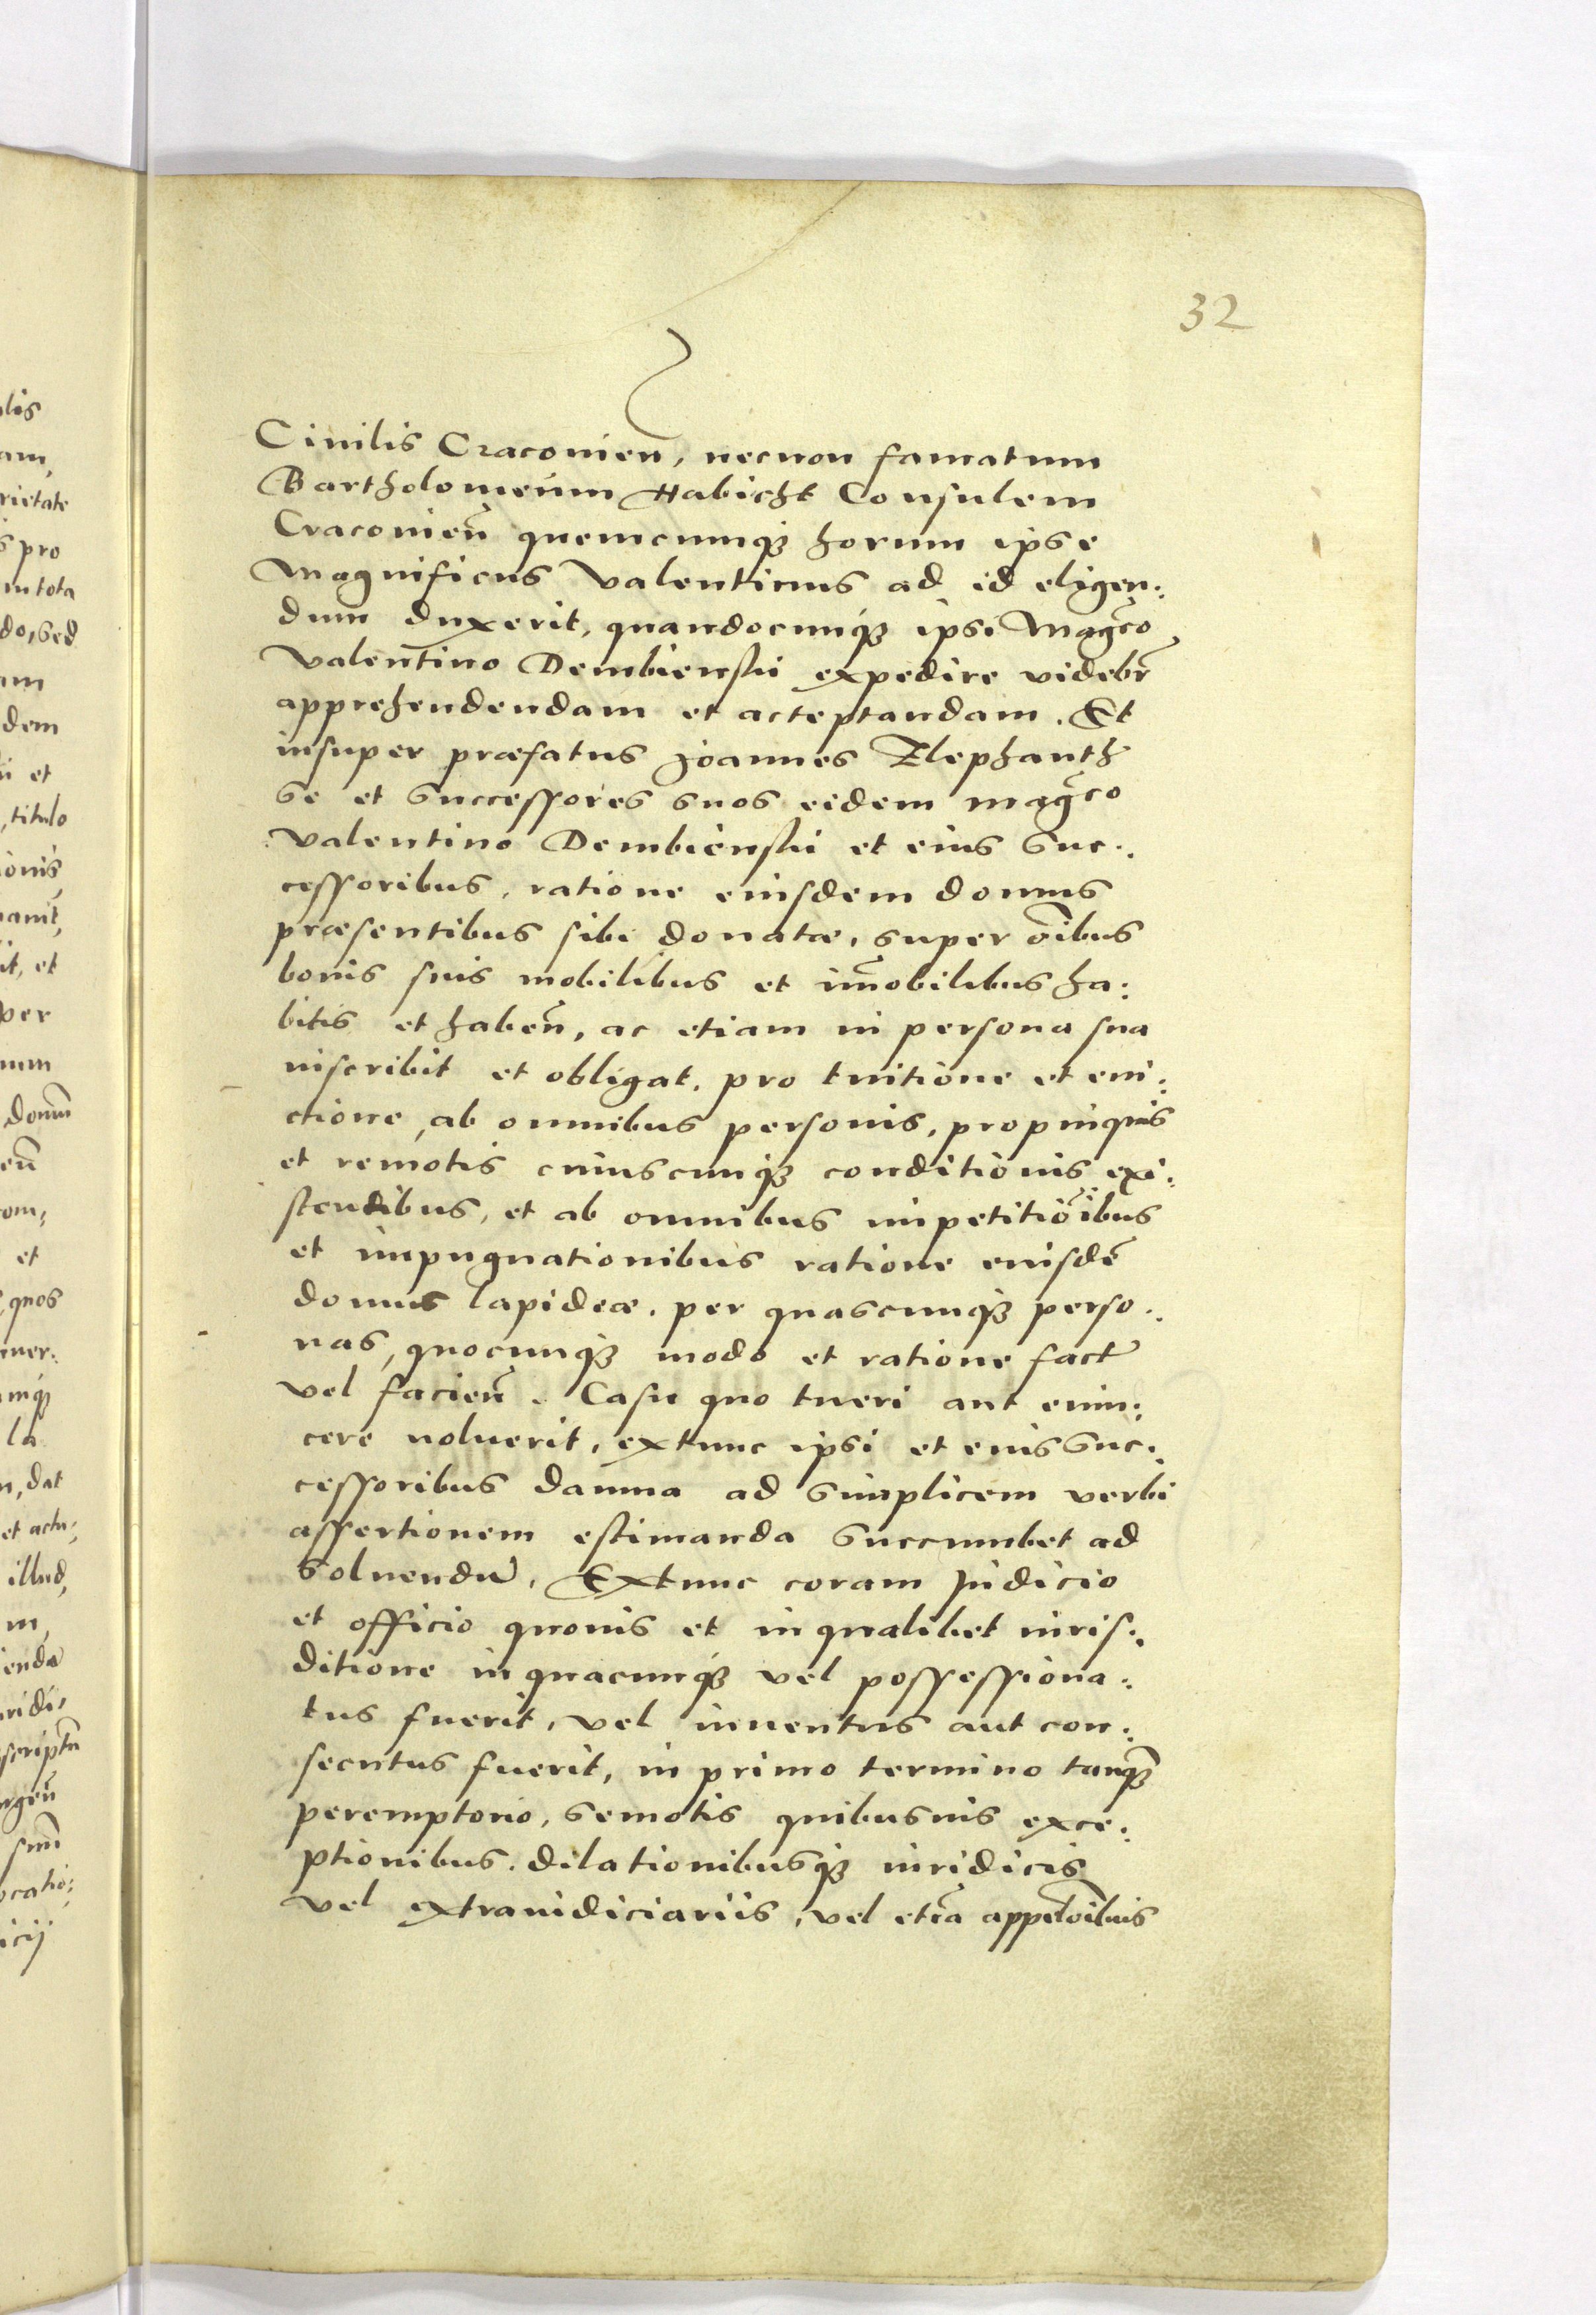 32
Ciuilis Cracouien̄, necnon famatum
Bartholomeum Habicht Consulem
Cracouien̄ quemcunqꝫ horum ipse
Magnificus Valentinus ad id eligen:
dum duxerit, quandocunqꝫ ipsi Mag̃co
Valentino Dembienski expedire videbr̃
apprehendendam et acceptandam. Et
insuper præfatus Joannes Elephanth
se et successores suos eidem mag̃co
Valentino Dembienski et eius suc:
cessoribus, ratione eiusdem domus
præsentibus sibi donatæ, super oĩbus
bonis suis mobilibus et im̃obilibus ha:
bitis et haben̄, ac etiam in persona sua
inscribit et obligat, pro tuitione et eui:
ctione, ab omnibus personis, propinquis
et remotis cuiuscunqꝫ conditionis exi:
stentibus, et ab omnibus impetitiõibus
et impugnationibus ratione eiusdē
domus lapideæ, per quascunqꝫ perso:
nas, quocunqꝫ modo et ratione fact̃
vel facien̄. Casu quo tueri aut euin:
cere noluerit, extunc ipsi et eius suc:
cessoribus damna ad simplicem verbi
assertionem estimanda succumbet ad
soluendū. Extunc coram Judicio
et officio quouis et in qualibet iuris:
ditione in quacunqꝫ vel possessiona:
tus fuerit, vel inuentus aut con:
secutus fuerit, in primo termino tanqꝫ
peremptorio, semotis quibusuis exce:
ptionibus, dilationibusqꝫ iuridicis
vel extraiudiciariis, vel etiã appellõibus